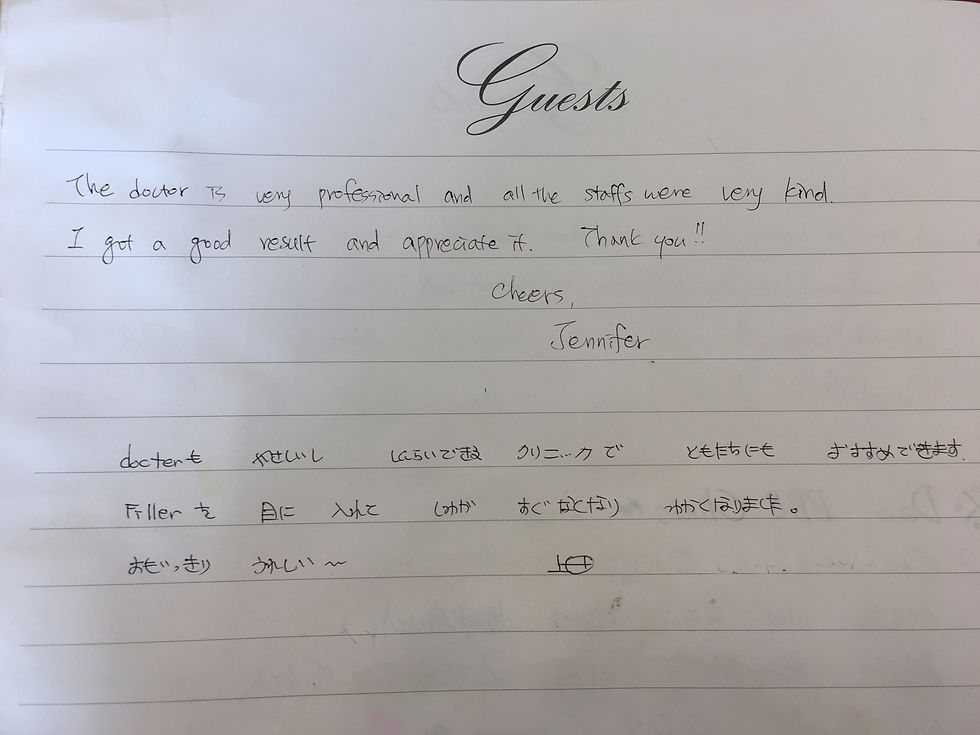 Guests
The doctor is very professional and all the staffs were very kind.
I got a good result and appreciate it. Thank you!!
Cheers,
Jennifer
docterも やさしいし しんらいできる クリニックで ともだちにも おすすめできます.
Fillerを 目に 入れて しわが すぐ なくなり わかくなりました。
おもいっきり うれしい〜